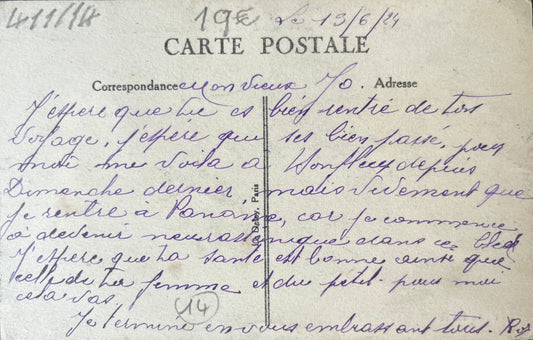 411/14
19€ Le 13/6/24
CARTE POSTALE
Correspondance mon vieux Jo. Adresse
J'espere que tu es bien rentré de ton
voyage, j'espere qui ses bien passé, pour
moi me voila a Honfleur depuis
Dimanche dernier, mais vivement que
je rentre à Paname, car je commence
a devenir neurasthenique dans ce bled
J'espere que ta santé est bonne ainsi que
celle de ta femme et du petit. pour moi
ca va.
14
Je termine en vous embrassant tous.
Paris